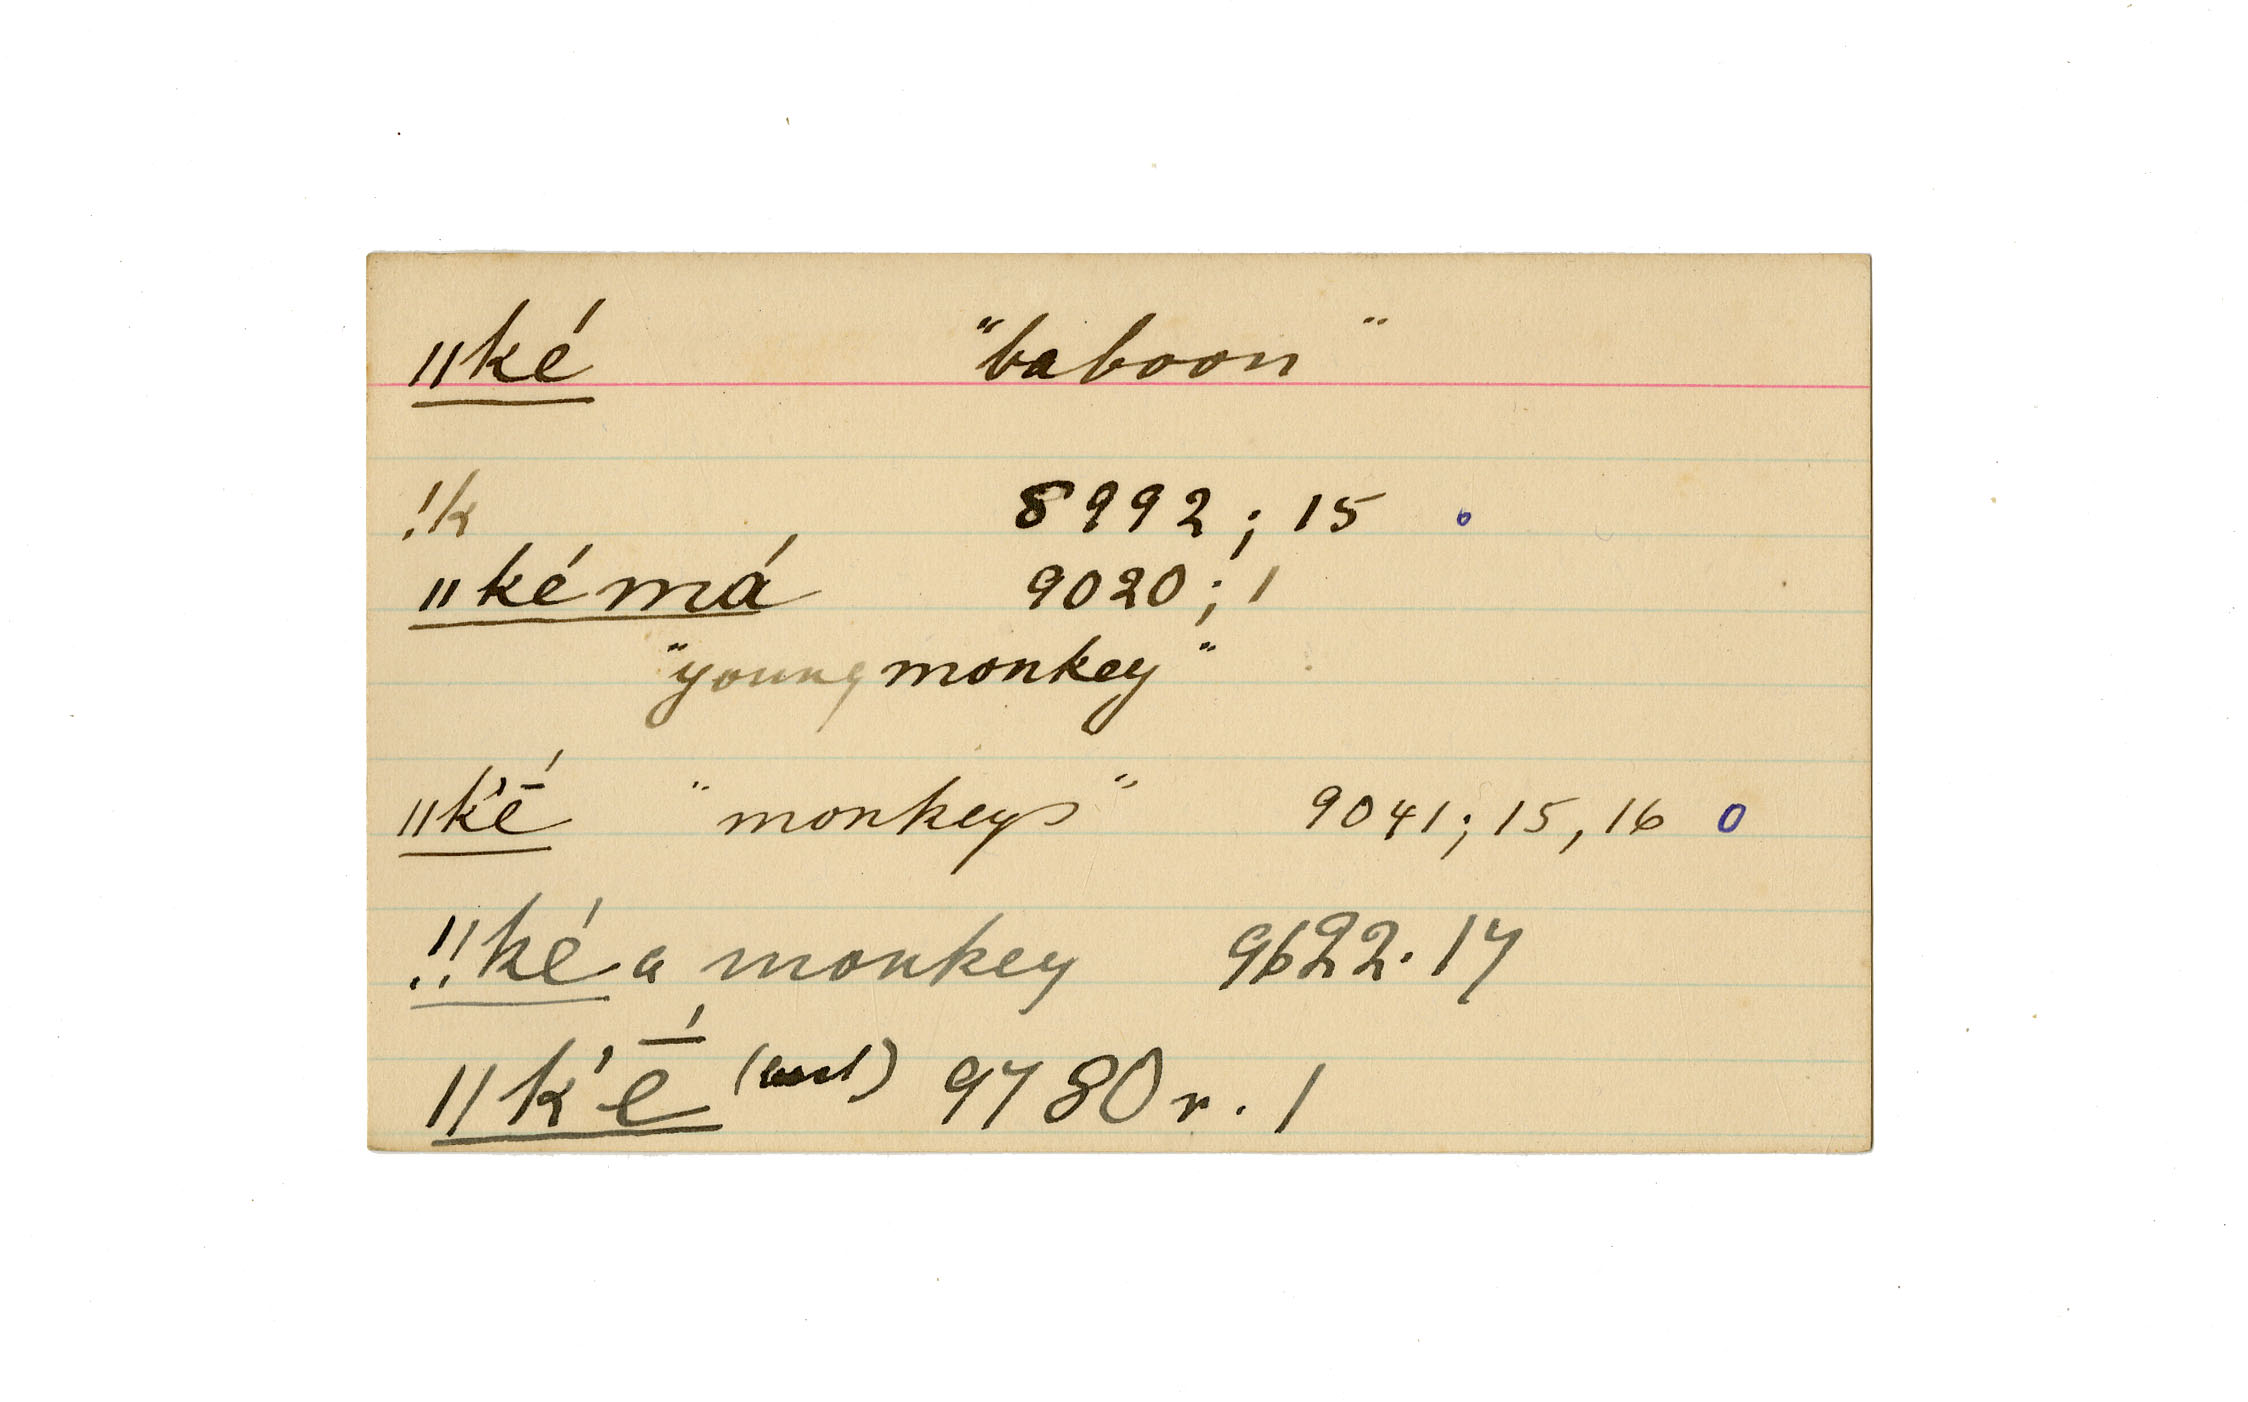 ǁké "baboon"
!k 8992; 15 o
ǁkémá 9020; 1
"young monkey"
ǁk'ḗ "monkeys" 9041; 15, 16 o
!!ké a monkey 9622. 17
ǁk'ḗ 9780 r. 1